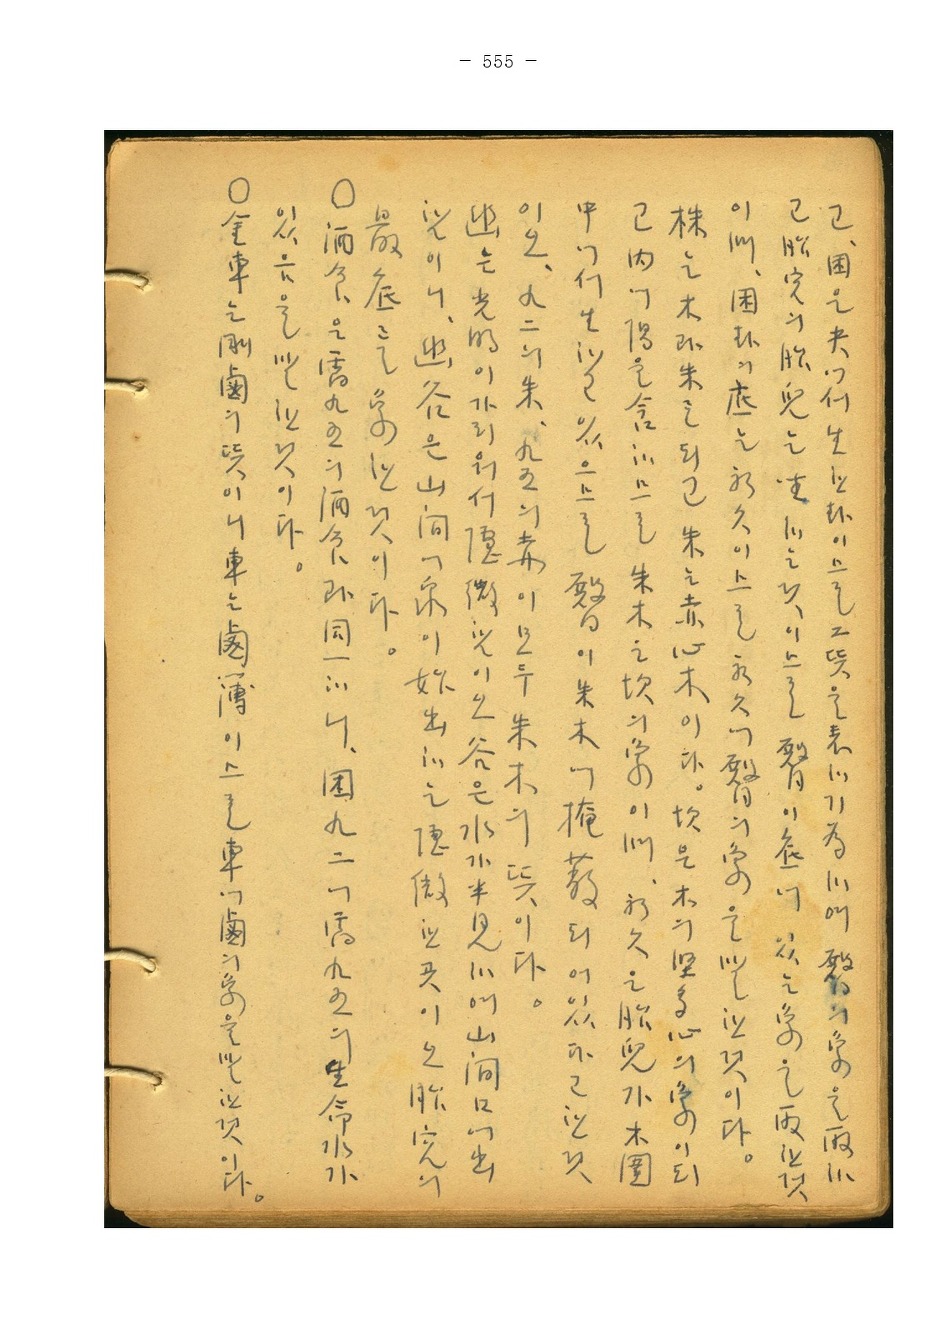 - 555 -
고, 困은 夬에서 生한 卦이므로 그 뜻을 表하기 爲하여 臀의 象을 取하
고 胎宮의 胎兒는 坐하는 것이므로 臀이 底에 있는 象을 取한 것
이며, 困卦의 底는 初爻이므로 初爻에 臀의 象을 말한 것이다。
株는 木과 朱로 되고 朱는 赤心木이다。坎은 木의 堅多心의 象이 되
고 內에 陽을 含하므로 朱木은 坎의 象이며, 初爻는 胎兒가 木圍
中에서 生하고 있으므로 臀이 朱木에 掩蔽되어 있다고 한 것
이오, 九二의 朱, 九五의 赤이 모두 朱木의 뜻이다。
幽는 光明이 가리워서 隱微함이오 谷은 水가 半見하여 山間口에 出
함이니, 幽谷은 山間에 泉이 始出하는 隱微한 곳이오 胎宮의
最底를 象한 것이다。
○ 酒食은 需九五의 酒食과 同一하니, 困九二에 需九五의 生命水가
있음을 말한 것이다。
○ 金車는 剛鹵의 뜻이니 車는 鹵簿이므로 車에 鹵의 象을 말한 것이다。